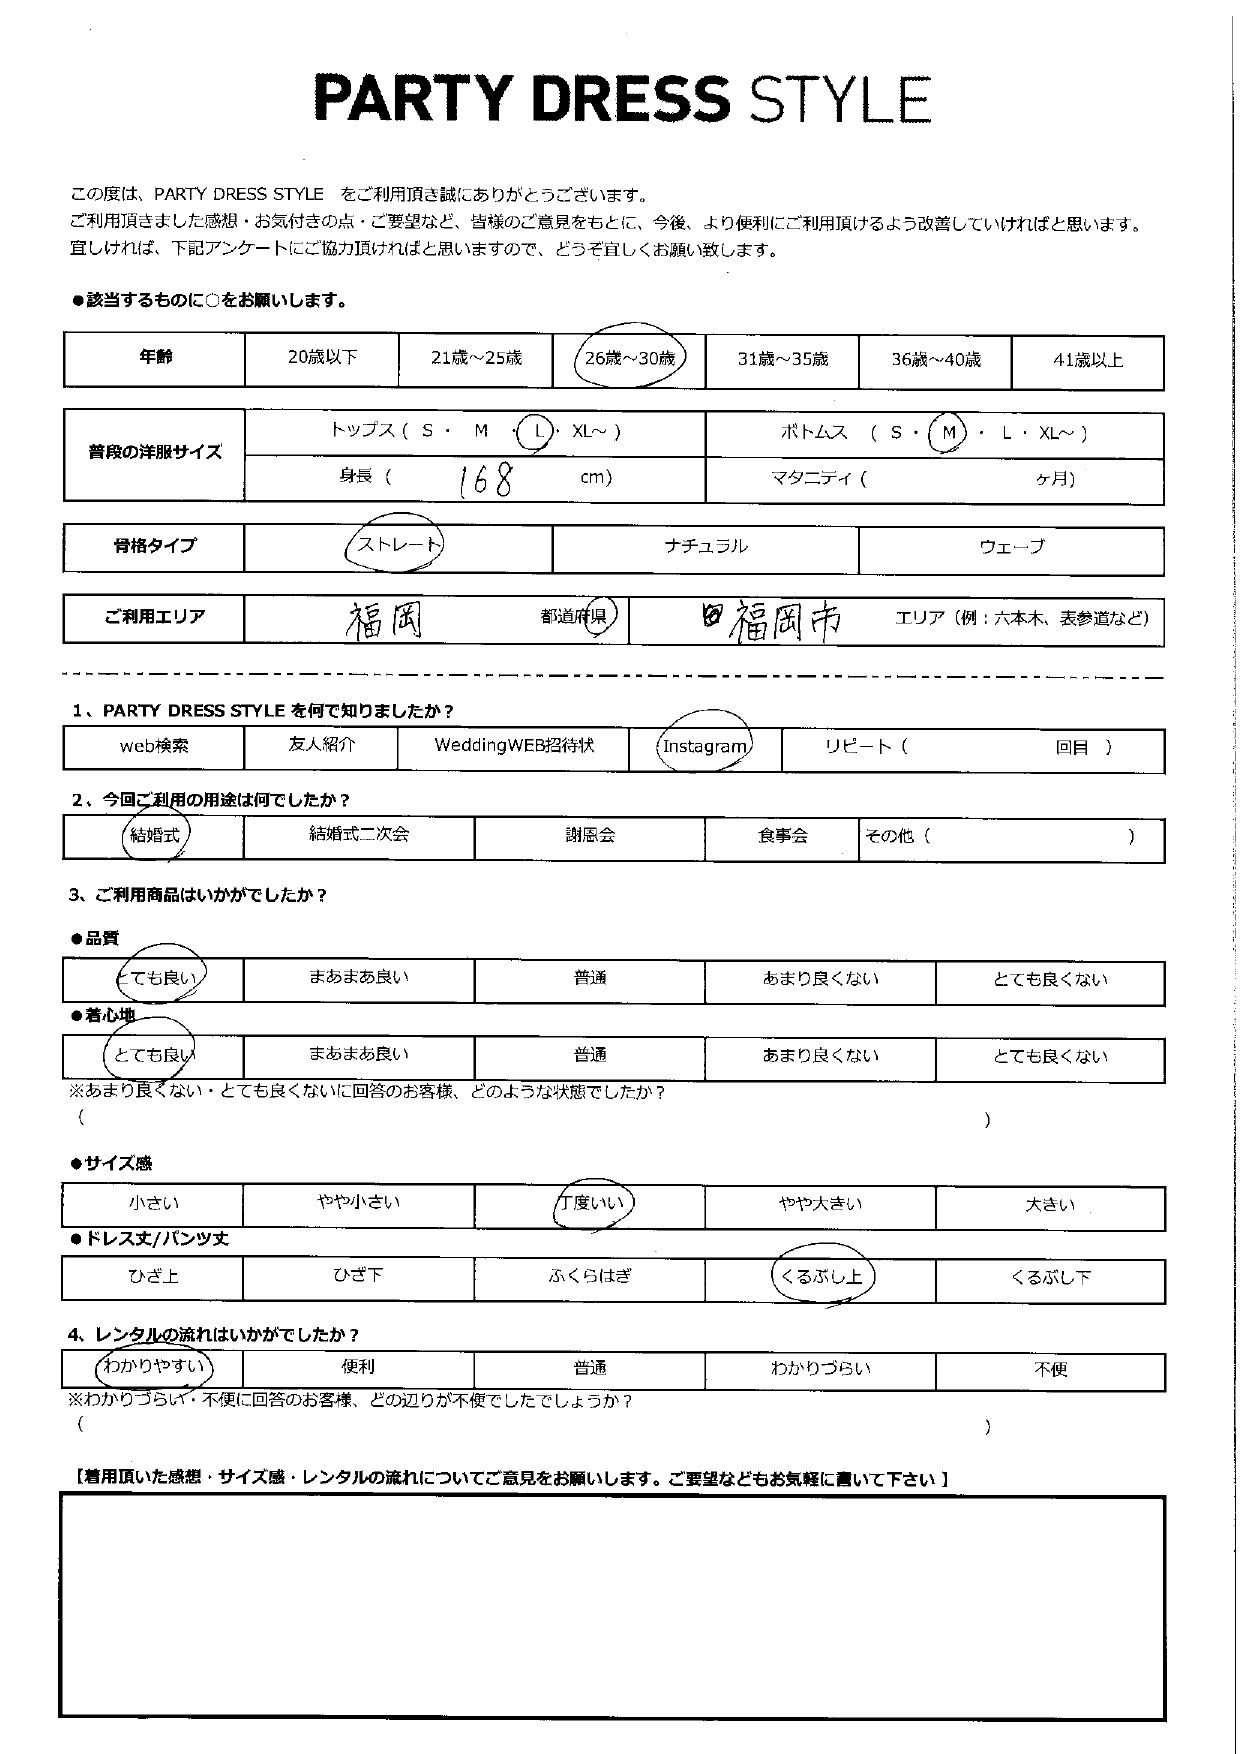 PARTY DRESS STYLE
この度は、PARTY DRESS STYLE をご利用頂き誠にありがとうございます。
ご利用頂きました感想・お気付きの点・ご要望など、皆様のご意見をもとに、今後、より便利にご利用頂けるよう改善していければと思います。
宜しければ、下記アンケートにご協力頂ければと思いますので、どうぞ宜しくお願い致します。
●該当するものに○をお願いします。
年齢 20歳以下 21歳～25歳 26歳～30歳 31歳～35歳 36歳～40歳 41歳以上
普段の洋服サイズ
トップス ( S ・ M ・ L ・ XL～ ) ボトムス ( S ・ M ・ L ・ XL～ )
身長 ( 168 cm) マタニティ ( ヶ月)
骨格タイプ ストレート ナチュラル ウェーブ
ご利用エリア 福岡 都道府県 福岡市 エリア（例：六本木、表参道など）
1、PARTY DRESS STYLE を何で知りましたか？
web検索 友人紹介 WeddingWEB招待状 Instagram リピート ( 回目 )
2、今回ご利用の用途は何でしたか？
結婚式 結婚式二次会 謝恩会 食事会 その他 ( )
3、ご利用商品はいかがでしたか？
●品質
とても良い まあまあ良い 普通 あまり良くない とても良くない
●着心地
とても良い まあまあ良い 普通 あまり良くない とても良くない
※あまり良くない・とても良くないに回答のお客様、どのような状態でしたか？
( )
●サイズ感
小さい やや小さい 丁度いい やや大きい 大きい
●ドレス丈/パンツ丈
ひざ上 ひざ下 ふくらはぎ くるぶし上 くるぶし下
4、レンタルの流れはいかがでしたか？
わかりやすい 便利 普通 わかりづらい 不便
※わかりづらい・不便に回答のお客様、どの辺りが不便でしたでしょうか？
( )
【着用頂いた感想・サイズ感・レンタルの流れについてご意見をお願いします。ご要望などもお気軽に書いて下さい】